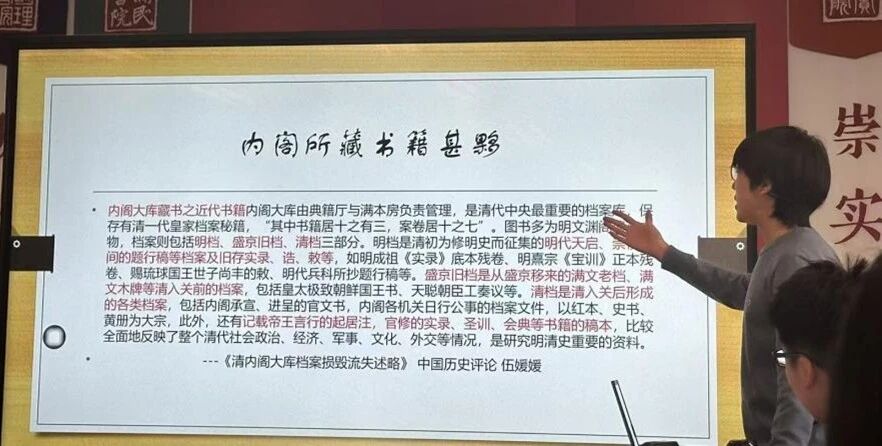 理
院
民
书
院
賓
崇
实
内阁所藏书籍甚夥
• 内阁大库藏书之近代书籍内阁大库由典籍厅与满本房负责管理，是清代中央最重要的档案库，保
存有清一代皇家档案秘籍，“其中书籍居十之有三，案卷居十之七”。图书多为明文渊
物，档案则包括明档、盛京旧档、清档三部分。明档是清初为修明史而征集的明代天启、崇
间的题行稿等档案及旧存实录、诰、敕等，如明成祖《实录》底本残卷、明熹宗《宝训》正本残
卷、赐琉球国王世子尚丰的敕、明代兵科所抄题行稿等。盛京旧档是从盛京移来的满文老档、满
文木牌等清入关前的档案，包括皇太极致朝鲜国王书、天聪朝臣工奏议等。清档是清入关后形成
的各类档案，包括内阁承宣、进呈的官文书，内阁各机关日行公事的档案文件，以红本、史书、
黄册为大宗，此外，还有记载帝王言行的起居注，官修的实录、圣训、会典等书籍的稿本，比较
全面地反映了整个清代社会政治、经济、军事、文化、外交等情况，是研究明清史重要的资料。
• ---《清内阁大库档案损毁流失述略》 中国历史评论 伍媛媛